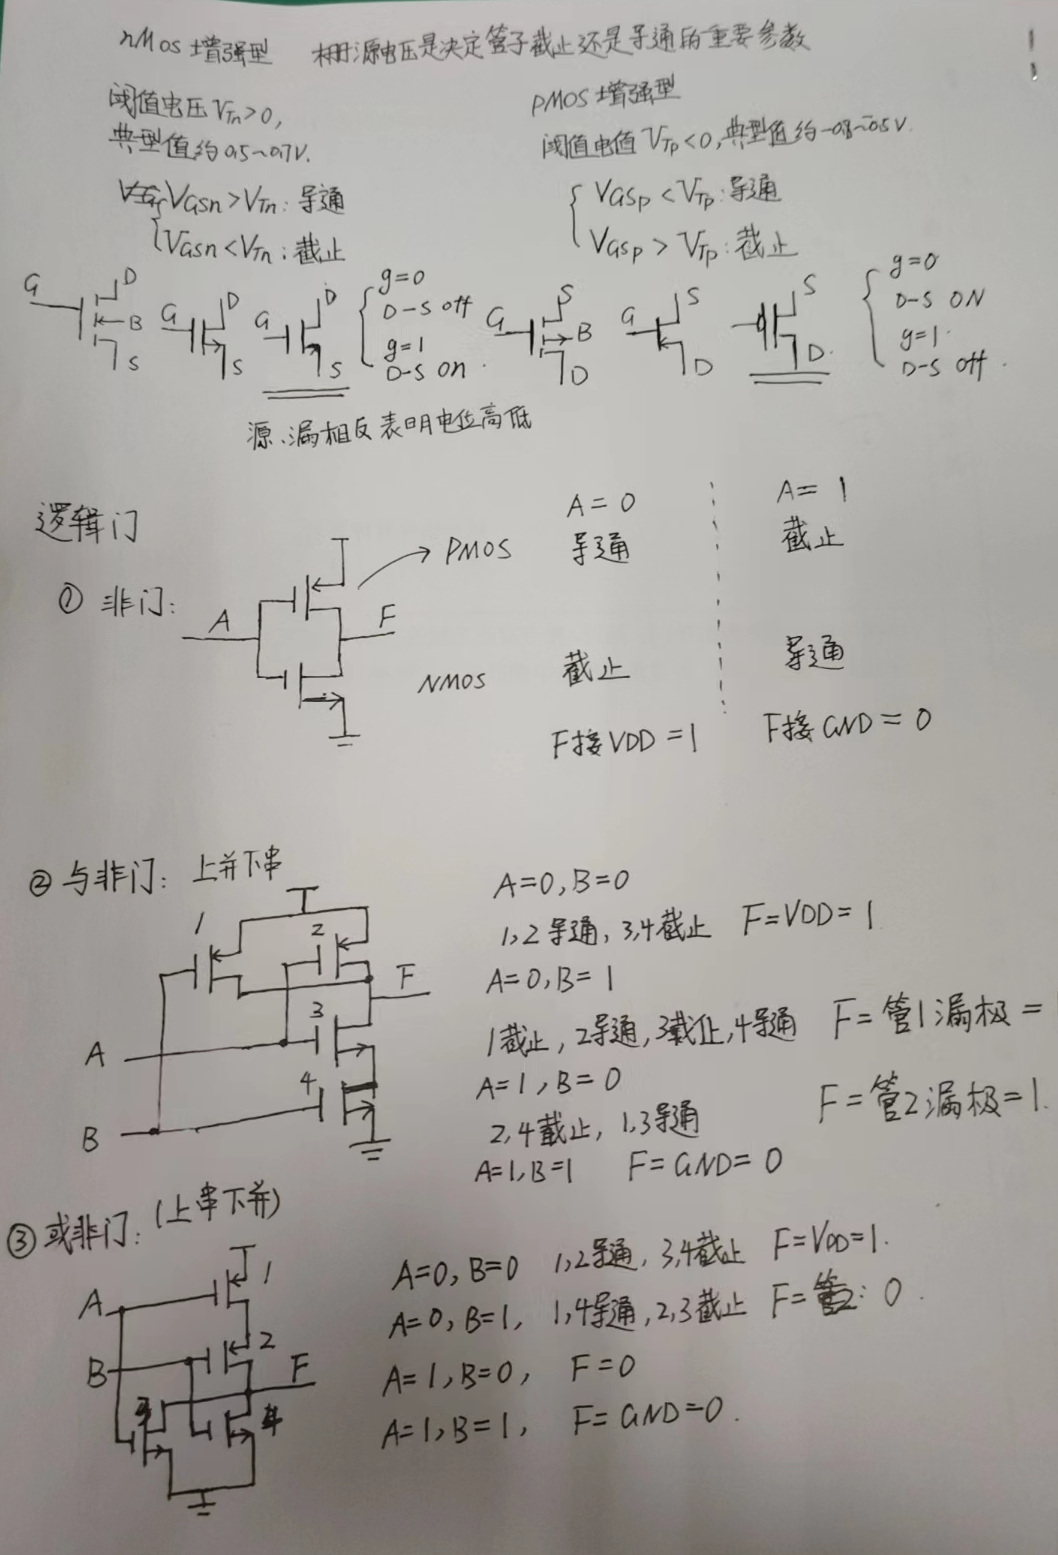 nMos 增强型 栅源电压是决定管子截止还是导通的重要参数
阈值电压 VTn>0,
典型值约0.5~0.7V.
VGSn>VTn: 导通
VGSn<VTn: 截止
PMOS 增强型
阈值电值 VTp<0, 典型值约-0.8~-0.5V.
VGSp<VTp: 导通
VGSp>VTp: 截止
G D B S
G D S
G D S
g=0
D-S off
g=1
D-S on
G S B D
G S D
S D
g=0
D-S ON
g=1
D-S off
源、漏相反表明电位高低
逻辑门
① 非门:
A F
PMOS
NMOS
A=0
导通
截止
F接VDD=1
A=1
截止
导通
F接GND=0
② 与非门: 上并下串
1 2 3 4
A B F
A=0, B=0
1,2导通, 3,4截止 F=VDD=1
A=0, B=1
1截止, 2导通, 3截止, 4导通 F=管1漏极=
A=1, B=0
2,4截止, 1,3导通 F=管2漏极=1.
A=1, B=1 F=GND=0
③ 或非门: (上串下并)
A B F
1 2 3 4
A=0, B=0 1,2导通, 3,4截止 F=VDD=1.
A=0, B=1, 1,4导通, 2,3截止 F= 0.
A=1, B=0, F=0
A=1, B=1, F=GND=0.